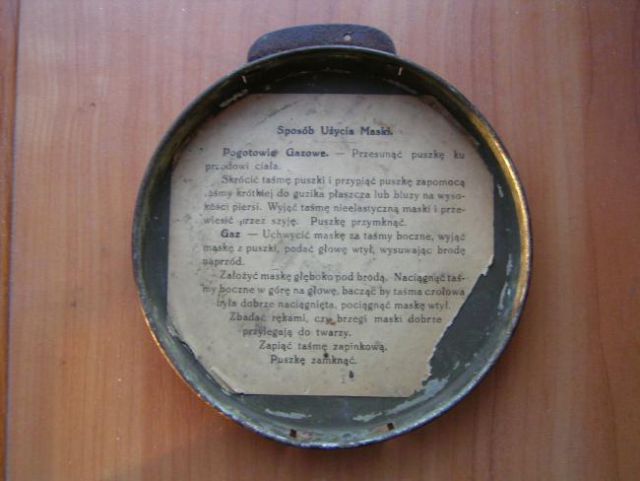 Sposób Użycia Maski.
Pogotowie Gazowe. — Przesunąć puszkę ku
przodowi ciała.
Skrócić taśmę puszki i przypiąć puszkę zapomocą
taśmy krótkiej do guzika płaszcza lub bluzy na wyso-
kości piersi. Wyjąć taśmę nieelastyczną maski i prze-
wiesić przez szyję. Puszkę przymknąć.
Gaz — Uchwycić maskę za taśmy boczne, wyjąć
maskę z puszki, podać głowę wtył, wysuwając brodę
naprzód.
Założyć maskę głęboko pod brodą. Naciągnąć taś-
my boczne w górę na głowę, bacząć by taśma czołowa
była dobrze naciągnięta, pociągnąć maskę wtył.
Zbadać rękami, czy brzegi maski dobrze
przylegają do twarzy.
Zapiąć taśmę zapinkową.
Puszkę zamknąć.